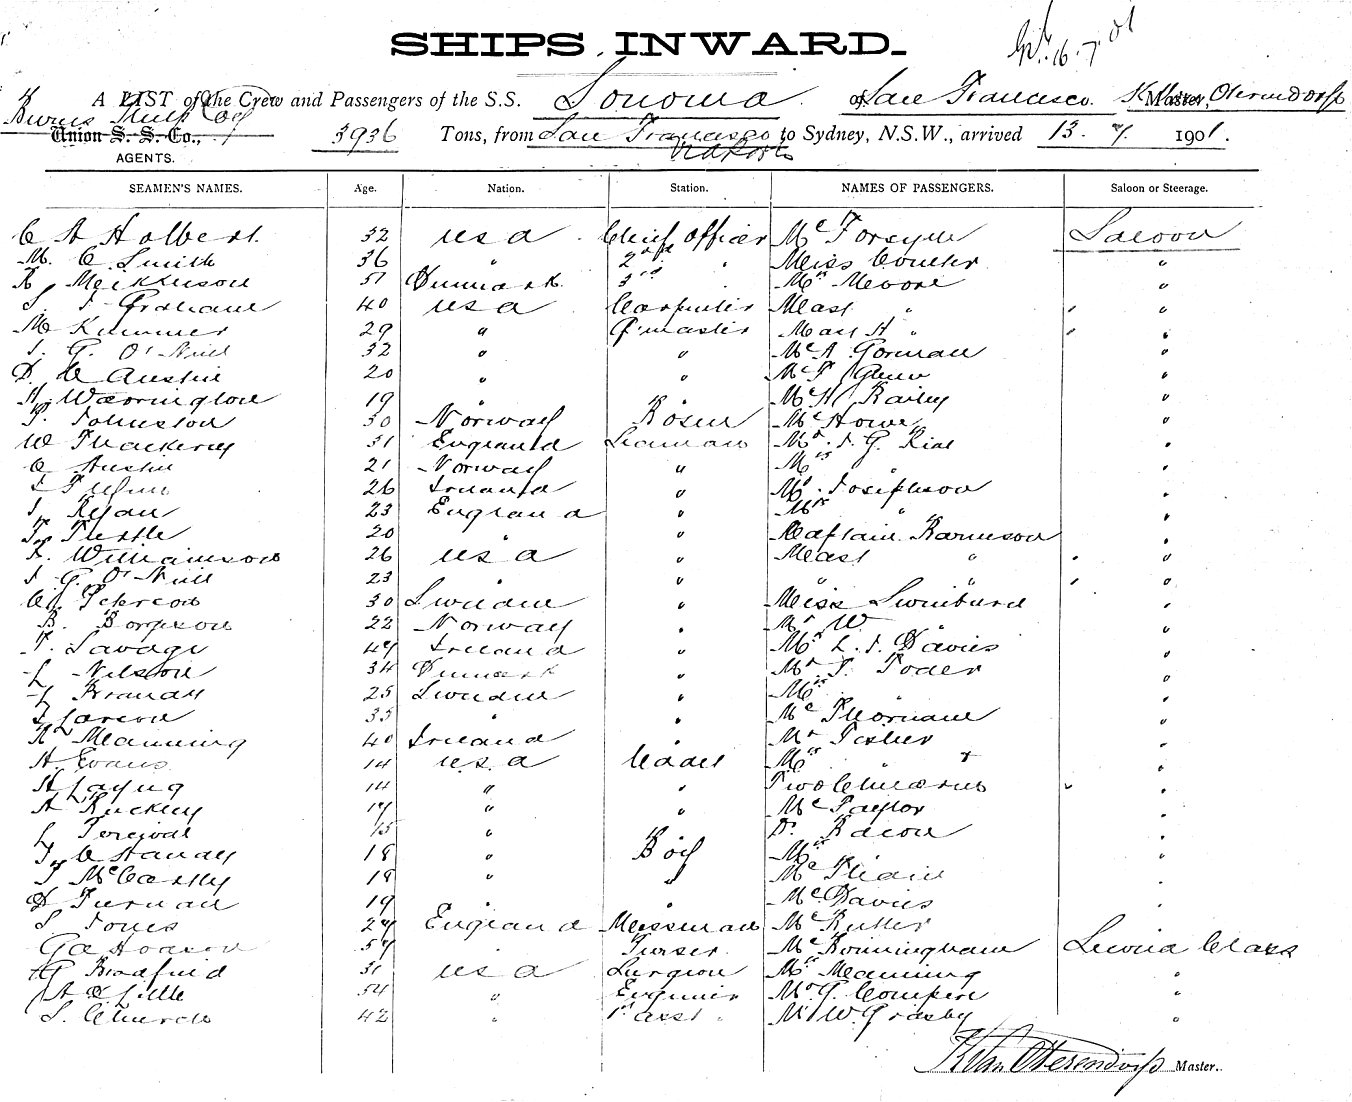 SHIPS INWARD.
16.7.01
A LIST of the Crew and Passengers of the S.S. Sonoma of San Francisco. Master, K Van Oterendorp
Burns Philp Coy
Union S. S. Co., 3936 Tons, from San Francisco to Sydney, N.S.W., arrived 13. 7 1901.
via Ports
AGENTS.
SEAMEN'S NAMES. Age. Nation. Station. NAMES OF PASSENGERS. Saloon or Steerage.
C A Holbert. 32 USA Chief Officer Mr Forsyth Saloon
M. C. Smith 36 " 2nd " Miss Coulter "
R Meikleson 51 Denmark 3rd " Mrs Moore "
S. J Graham 40 USA Carpenter Mast " "
M Kummer 29 " Q'master Mast H " "
J. G. O'Neill 32 " " Mr A Gorman "
D. C Austin 20 " " Mr F Glenn "
H. Warrington 19 " " Mr H Bailey "
P. Johnston 30 Norway Bosun Mr Howe "
W Thackeray 31 England Seaman Mr. J. G. Rial "
C Austin 21 Norway " Mrs " "
J Flynn 26 Ireland " Mr. Josephson "
J. Ryan 23 England " Mrs " "
20 " " Captain Rarmson "
J. Williamson 26 USA " Mast " "
J G. O'Neill 23 " " " " "
C. Peterson 30 Sweden " Miss Swinburn "
B. Borgeson 22 Norway " Mr W. " "
F. Savage 47 Ireland " Mr L. J. Davies "
L Nilson 34 Denmark " Mr P. Foder "
L Brandy 25 Sweden " Mrs " "
J Larson 35 " " Mr Thornam "
R Manning 40 Ireland " Mr Fisher "
H Evans 14 U.S.A Cadet Mrs " + "
H Layng 14 " " Two Children "
A Buckley 17 " " Mr Taylor "
L Percival 15 " " Dr. Bacon "
J. C Handy 18 " Boy Mrs "
J McCarthy 18 " " Mr Thain "
D Furnan 19 " " Mr Davies "
S. Jones 27 England Messman Mr Rutter "
G A Hodson 57 " Purser Mr Bonningham Second Class
H G Bradfield 31 USA Surgeon Mrs Manning "
A C Little 54 " Engineer Mr G. Compere "
S. Church 42 " 1st asst " Mr W. Grasby "
K Van Oterendorp Master.